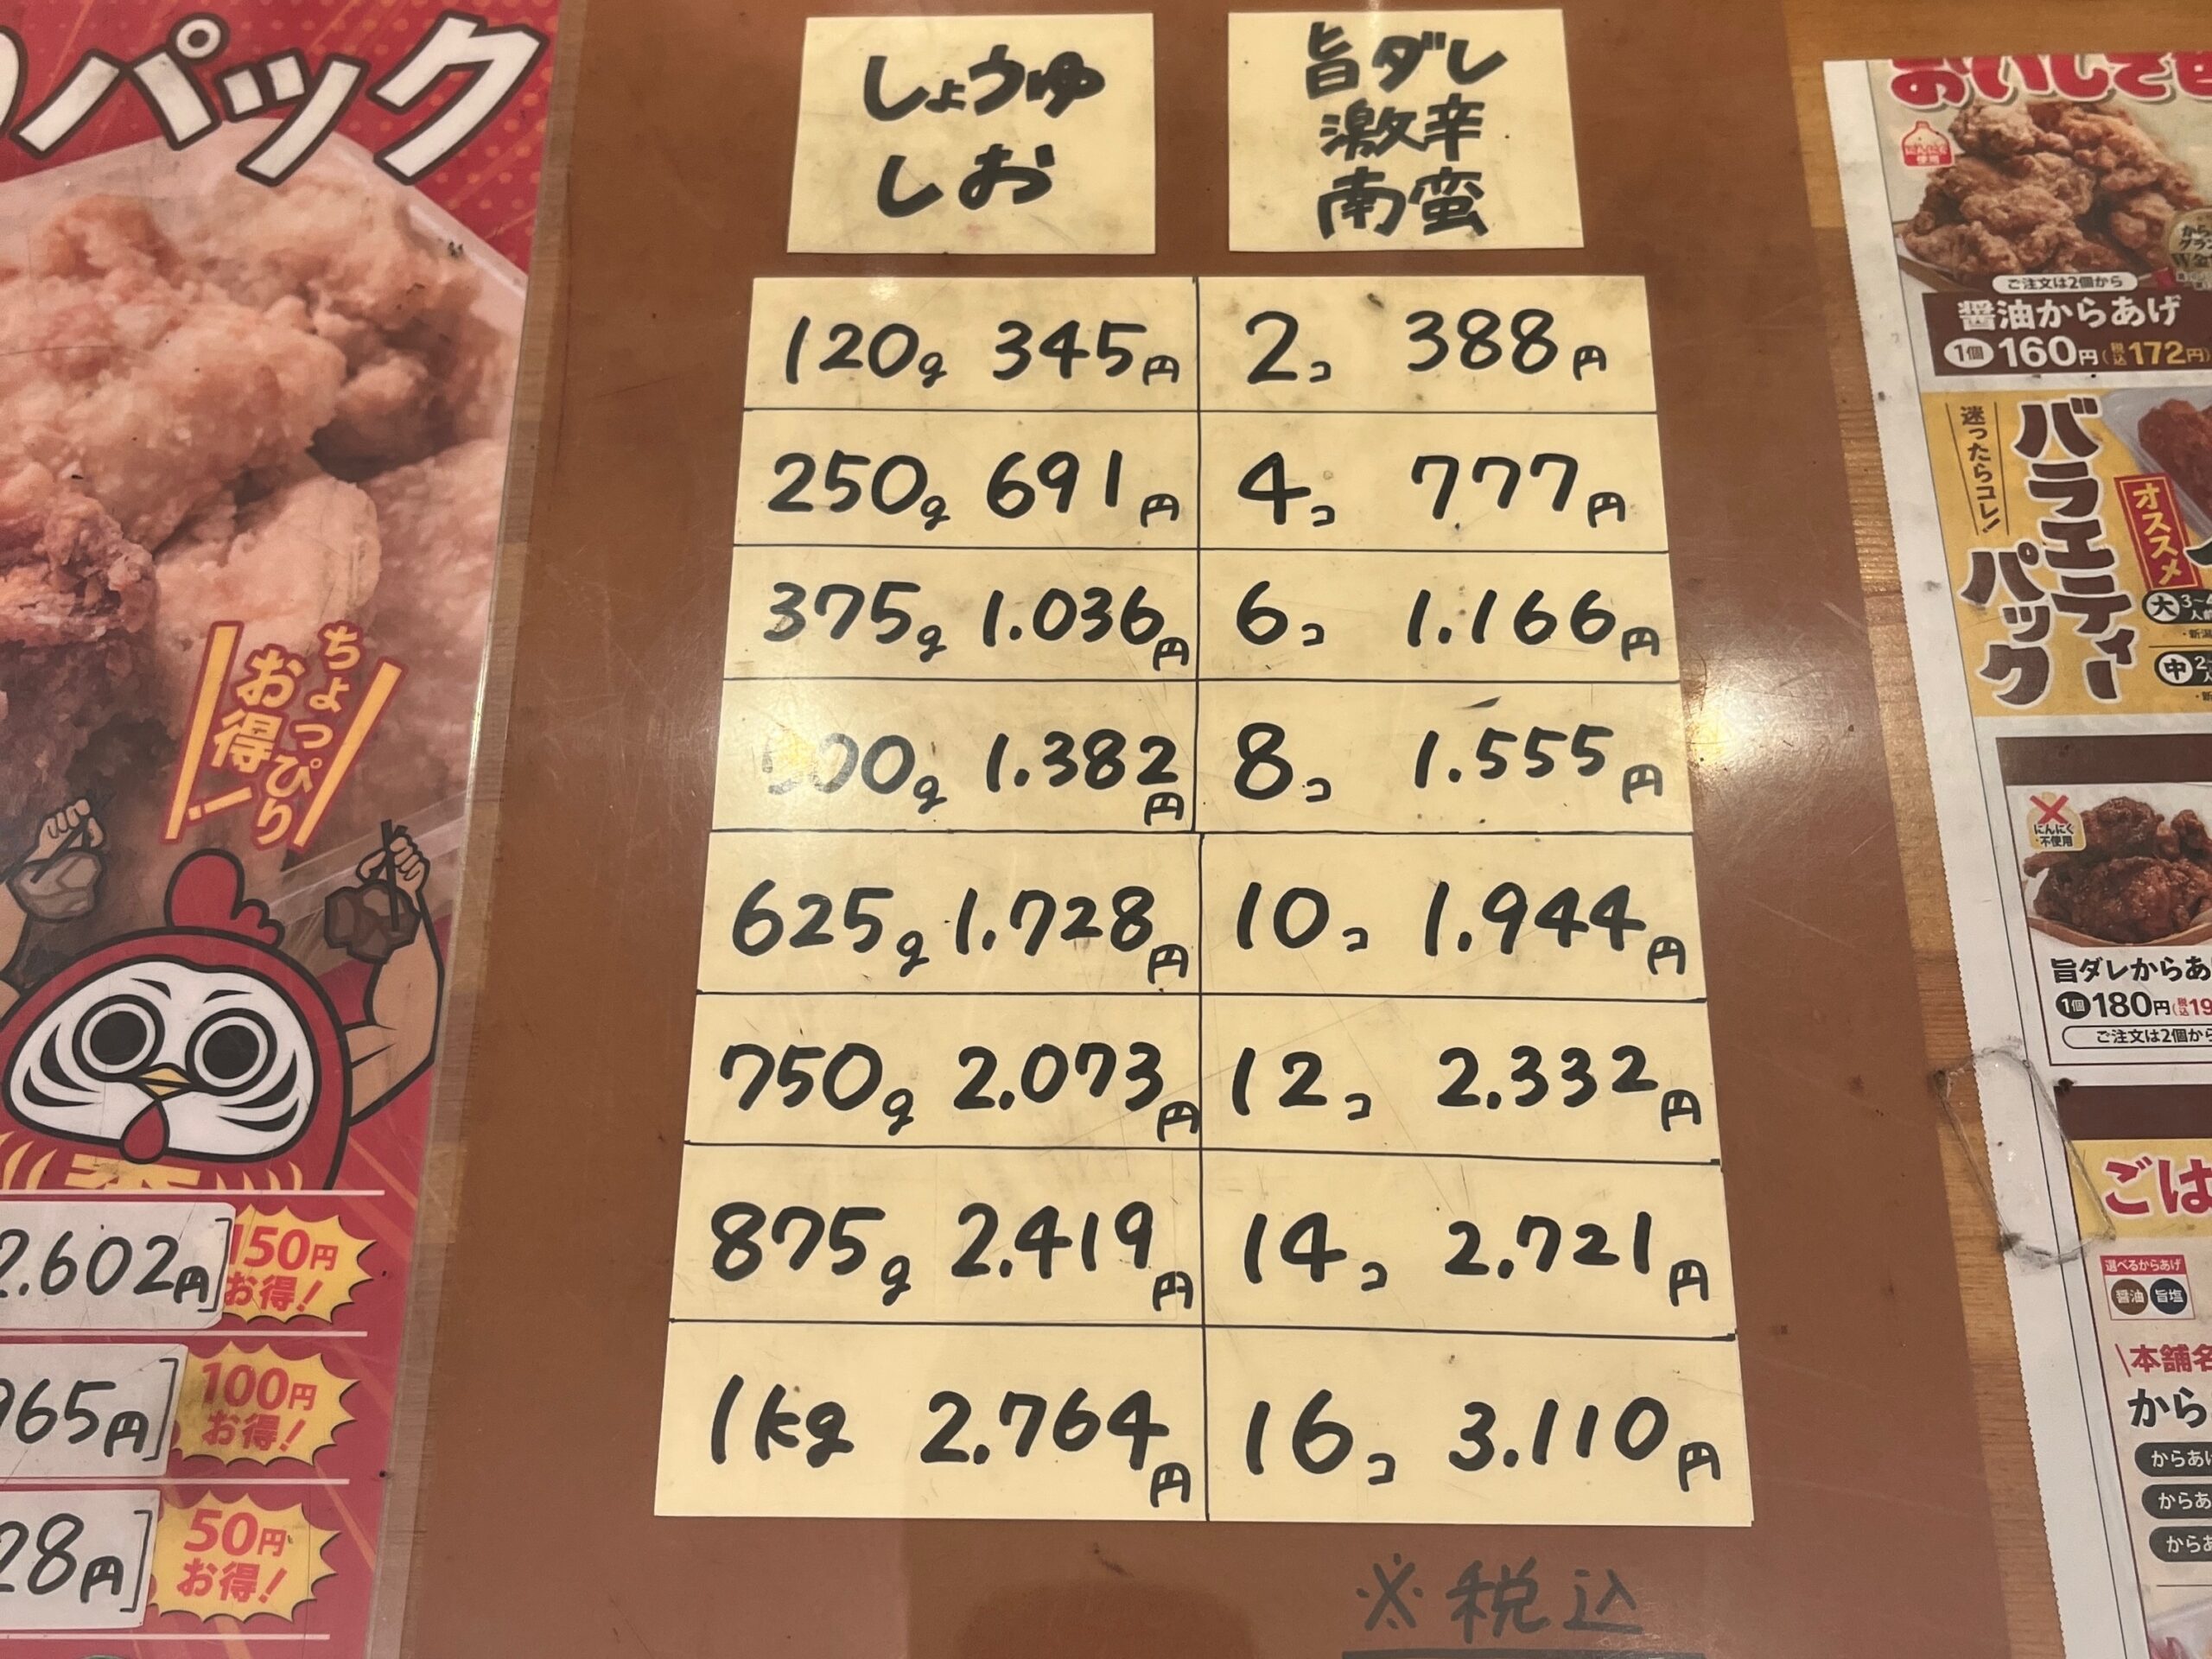 パック
ちょっぴり
お得!
2.602円]
150円
お得!
965円]
100円
お得!
28円]
50円
お得!
しょうゆ
しお
旨ダレ
激辛
南蛮
120g 345円 2コ 388円
250g 691円 4コ 777円
375g 1.036円 6コ 1.166円
00g 1.382円 8コ 1.555円
625g 1.728円 10コ 1.944円
750g 2.073円 12コ 2.332円
875g 2.419円 14コ 2.721円
1kg 2.764円 16コ 3.110円
※税込
おいしさ
ご注文は2個から
醤油からあげ
1個 160円(税込172円)
迷ったらコレ!
バラエティー
パック
オススメ
大
中
にんにく
不使用
旨ダレからあ
1個 180円(税込19
ご注文は2個から
ごは
選べるからあげ
醤油 旨塩
本舗名
から
からあ
からあ
からあ